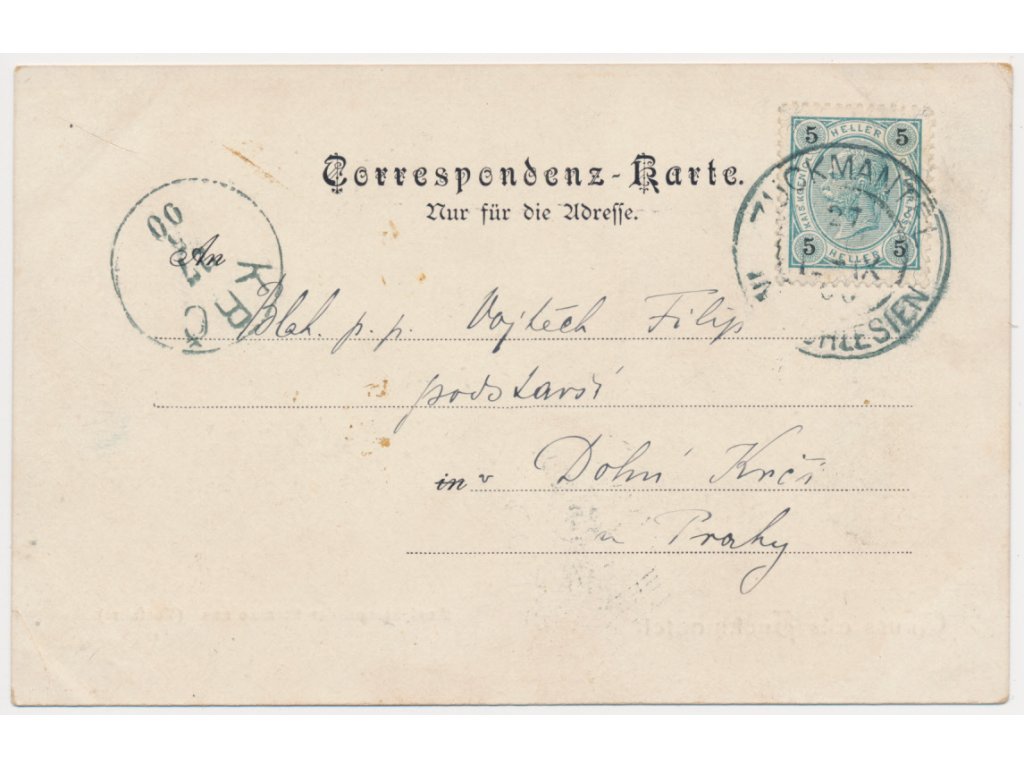 Correspondenz-Karte.
Nur für die Adresse.
5 HELLER 5
5 HELLER 5
ZUCKMANTEL
SCHLESIEN
27
IX
KRČ
00
An
Blah. p. p. Vojtěch Filip
podstarší
in v Dolní Krči
u Prahy